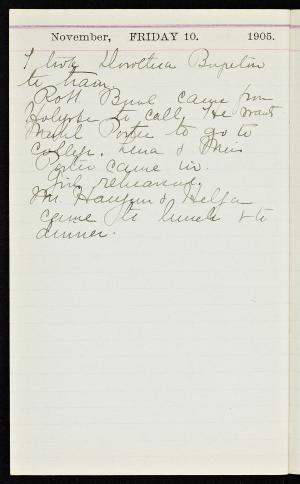 November, FRIDAY 10. 1905.
I took Dorothea
to train.
Rott came from
Holyoke to call. He wants
Porter to go to
college. Lena & Miss
Porter came in.
Girls rehearsed.
Mr. & Helga
came to lunch & to
dinner.